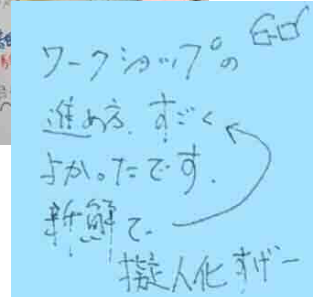 ワークショップの
進め方、すごく
よかったです.
新鮮で
擬人化すげー